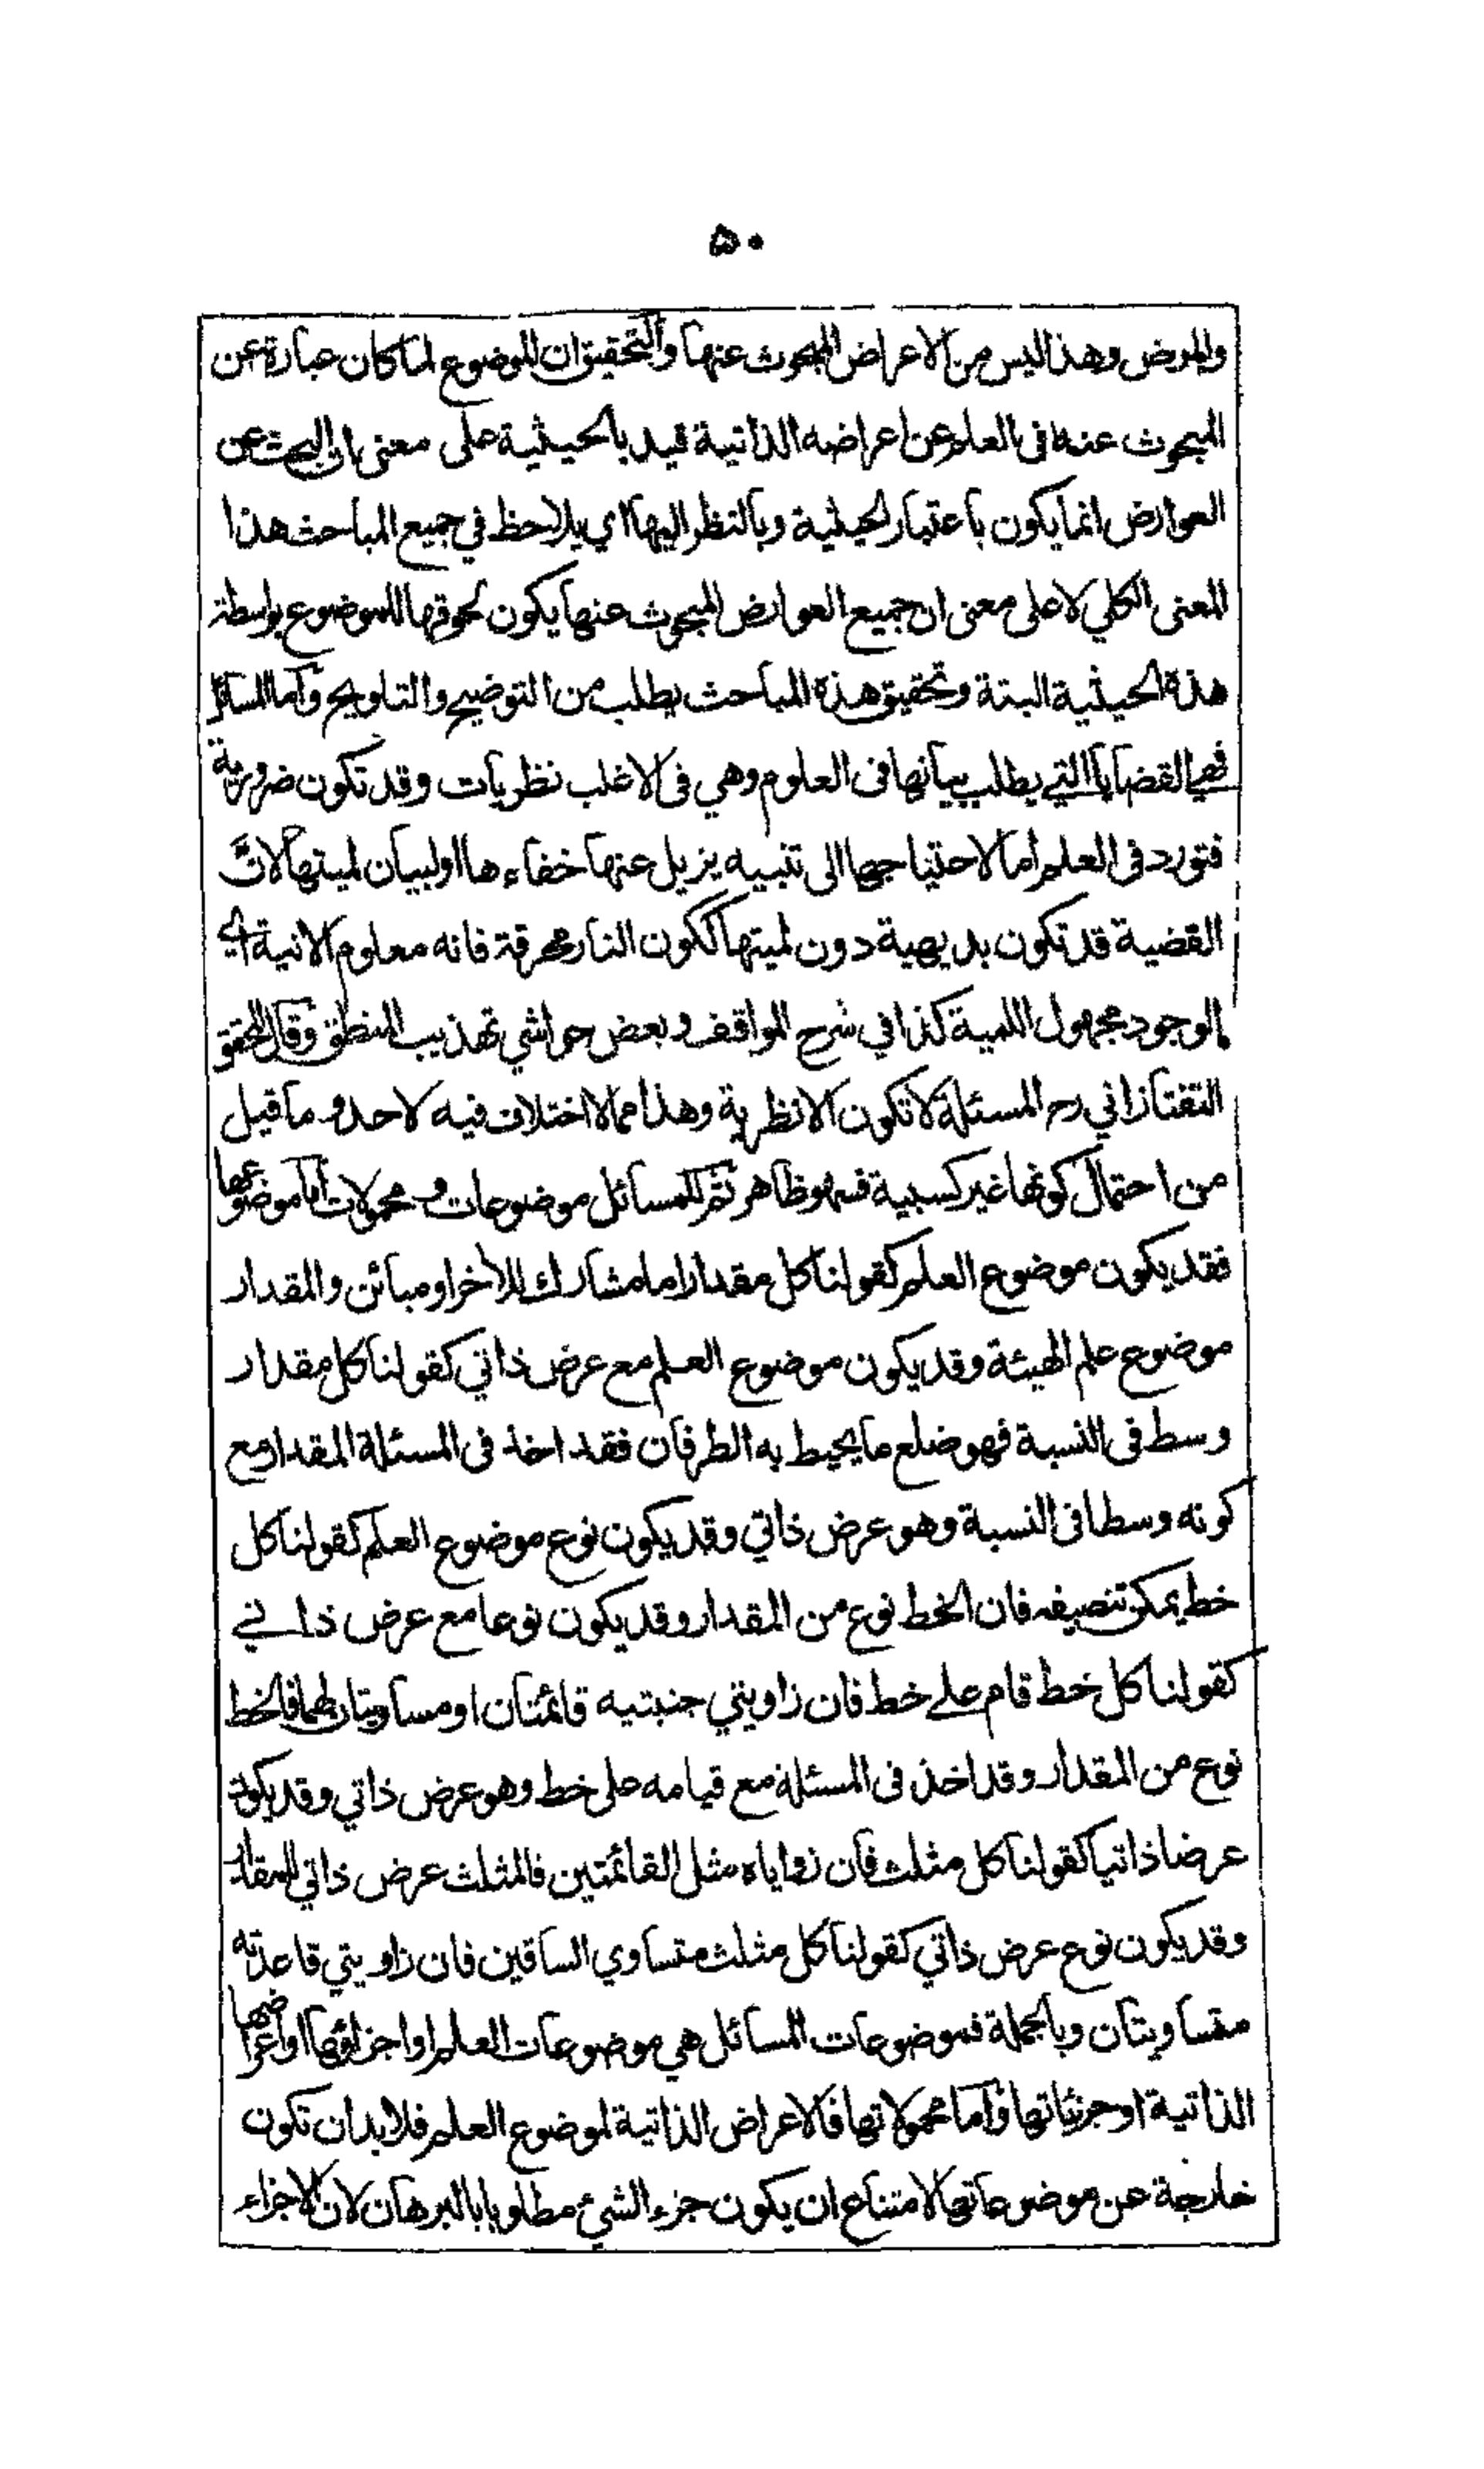 ۵۰
والمرض وهذا ليس من الاعراض المبحوث عنها والتحقيق ان الموضوع لما كان عبارة عن
المبحوث عنه فى العلم عن اعراضه الذاتية قيد بالحيثية على معنى ان البحث عن
العوارض انما يكون باعتبار الحيثية وبالنظر اليها اي يلاحظ في جميع المباحث هذا
المعنى الكلي لا على معنى ان جميع العوارض المبحوث عنها يكون لحوقها للموضوع بواسطة
هذه الحيثية البتة وتحقيق هذه المباحث يطلب من التوضيح والتلويح وآما المسائل
فهي القضايا التي يطلب بيانها فى العلوم وهي فى الاغلب نظريات وقد تكون ضرورية
فتورد فى العلم اما لاحتياجها الى تنبيه يزيل عنها خفاءها او لبيان لميتها لان
القضية قد تكون بديهية دون لميتها ككون النار محرقة فانه معلوم الانية اي
الوجود مجهول اللمية كذا في شرح المواقف وبعض حواشي تهذيب المنطق وقال المحقق
التفتازاني رح المسئلة لا تكون الا نظرية وهذا مما لا اختلاف فيه لاحد وما قيل
من احتمال كونها غير كسبية فسهو ظاهر ثم للمسائل موضوعات ومحمولات اما موضوعها
فقد يكون موضوع العلم كقولنا كل مقدار اما مشارك للاخر او مبائن والمقدار
موضوع علم الهيئة وقد يكون موضوع العلم مع عرض ذاتي كقولنا كل مقدار
وسط فى النسبة فهو ضلع ما يحيط به الطرفان فقد اخذ فى المسئلة المقدار مع
كونه وسطا فى النسبة وهو عرض ذاتي وقد يكون نوع موضوع العلم كقولنا كل
خط يمكن تنصيفه فان الخط نوع من المقدار وقد يكون نوعا مع عرض ذاتي
كقولنا كل خط قام على خط فان زاويتي جنبتيه قائمتان او مساويتان لهما فالخط
نوع من المقدار وقد اخذ فى المسئلة مع قيامه على خط وهو عرض ذاتي وقد يكون
عرضا ذاتيا كقولنا كل مثلث فان زواياه مثل القائمتين فالمثلث عرض ذاتي للمقدار
وقد يكون نوع عرض ذاتي كقولنا كل مثلث متساوي الساقين فان زاويتي قاعدته
متساويتان وبالجملة فموضوعات المسائل هي موضوعات العلم او اجزاؤها او اعراضها
الذاتية او جزئياتها وآما محمولاتها فالاعراض الذاتية لموضوع العلم فلا بد ان تكون
خارجة عن موضوعاتها لامتناع ان يكون جزء الشيء مطلوبا بالبرهان لان الاجزاء